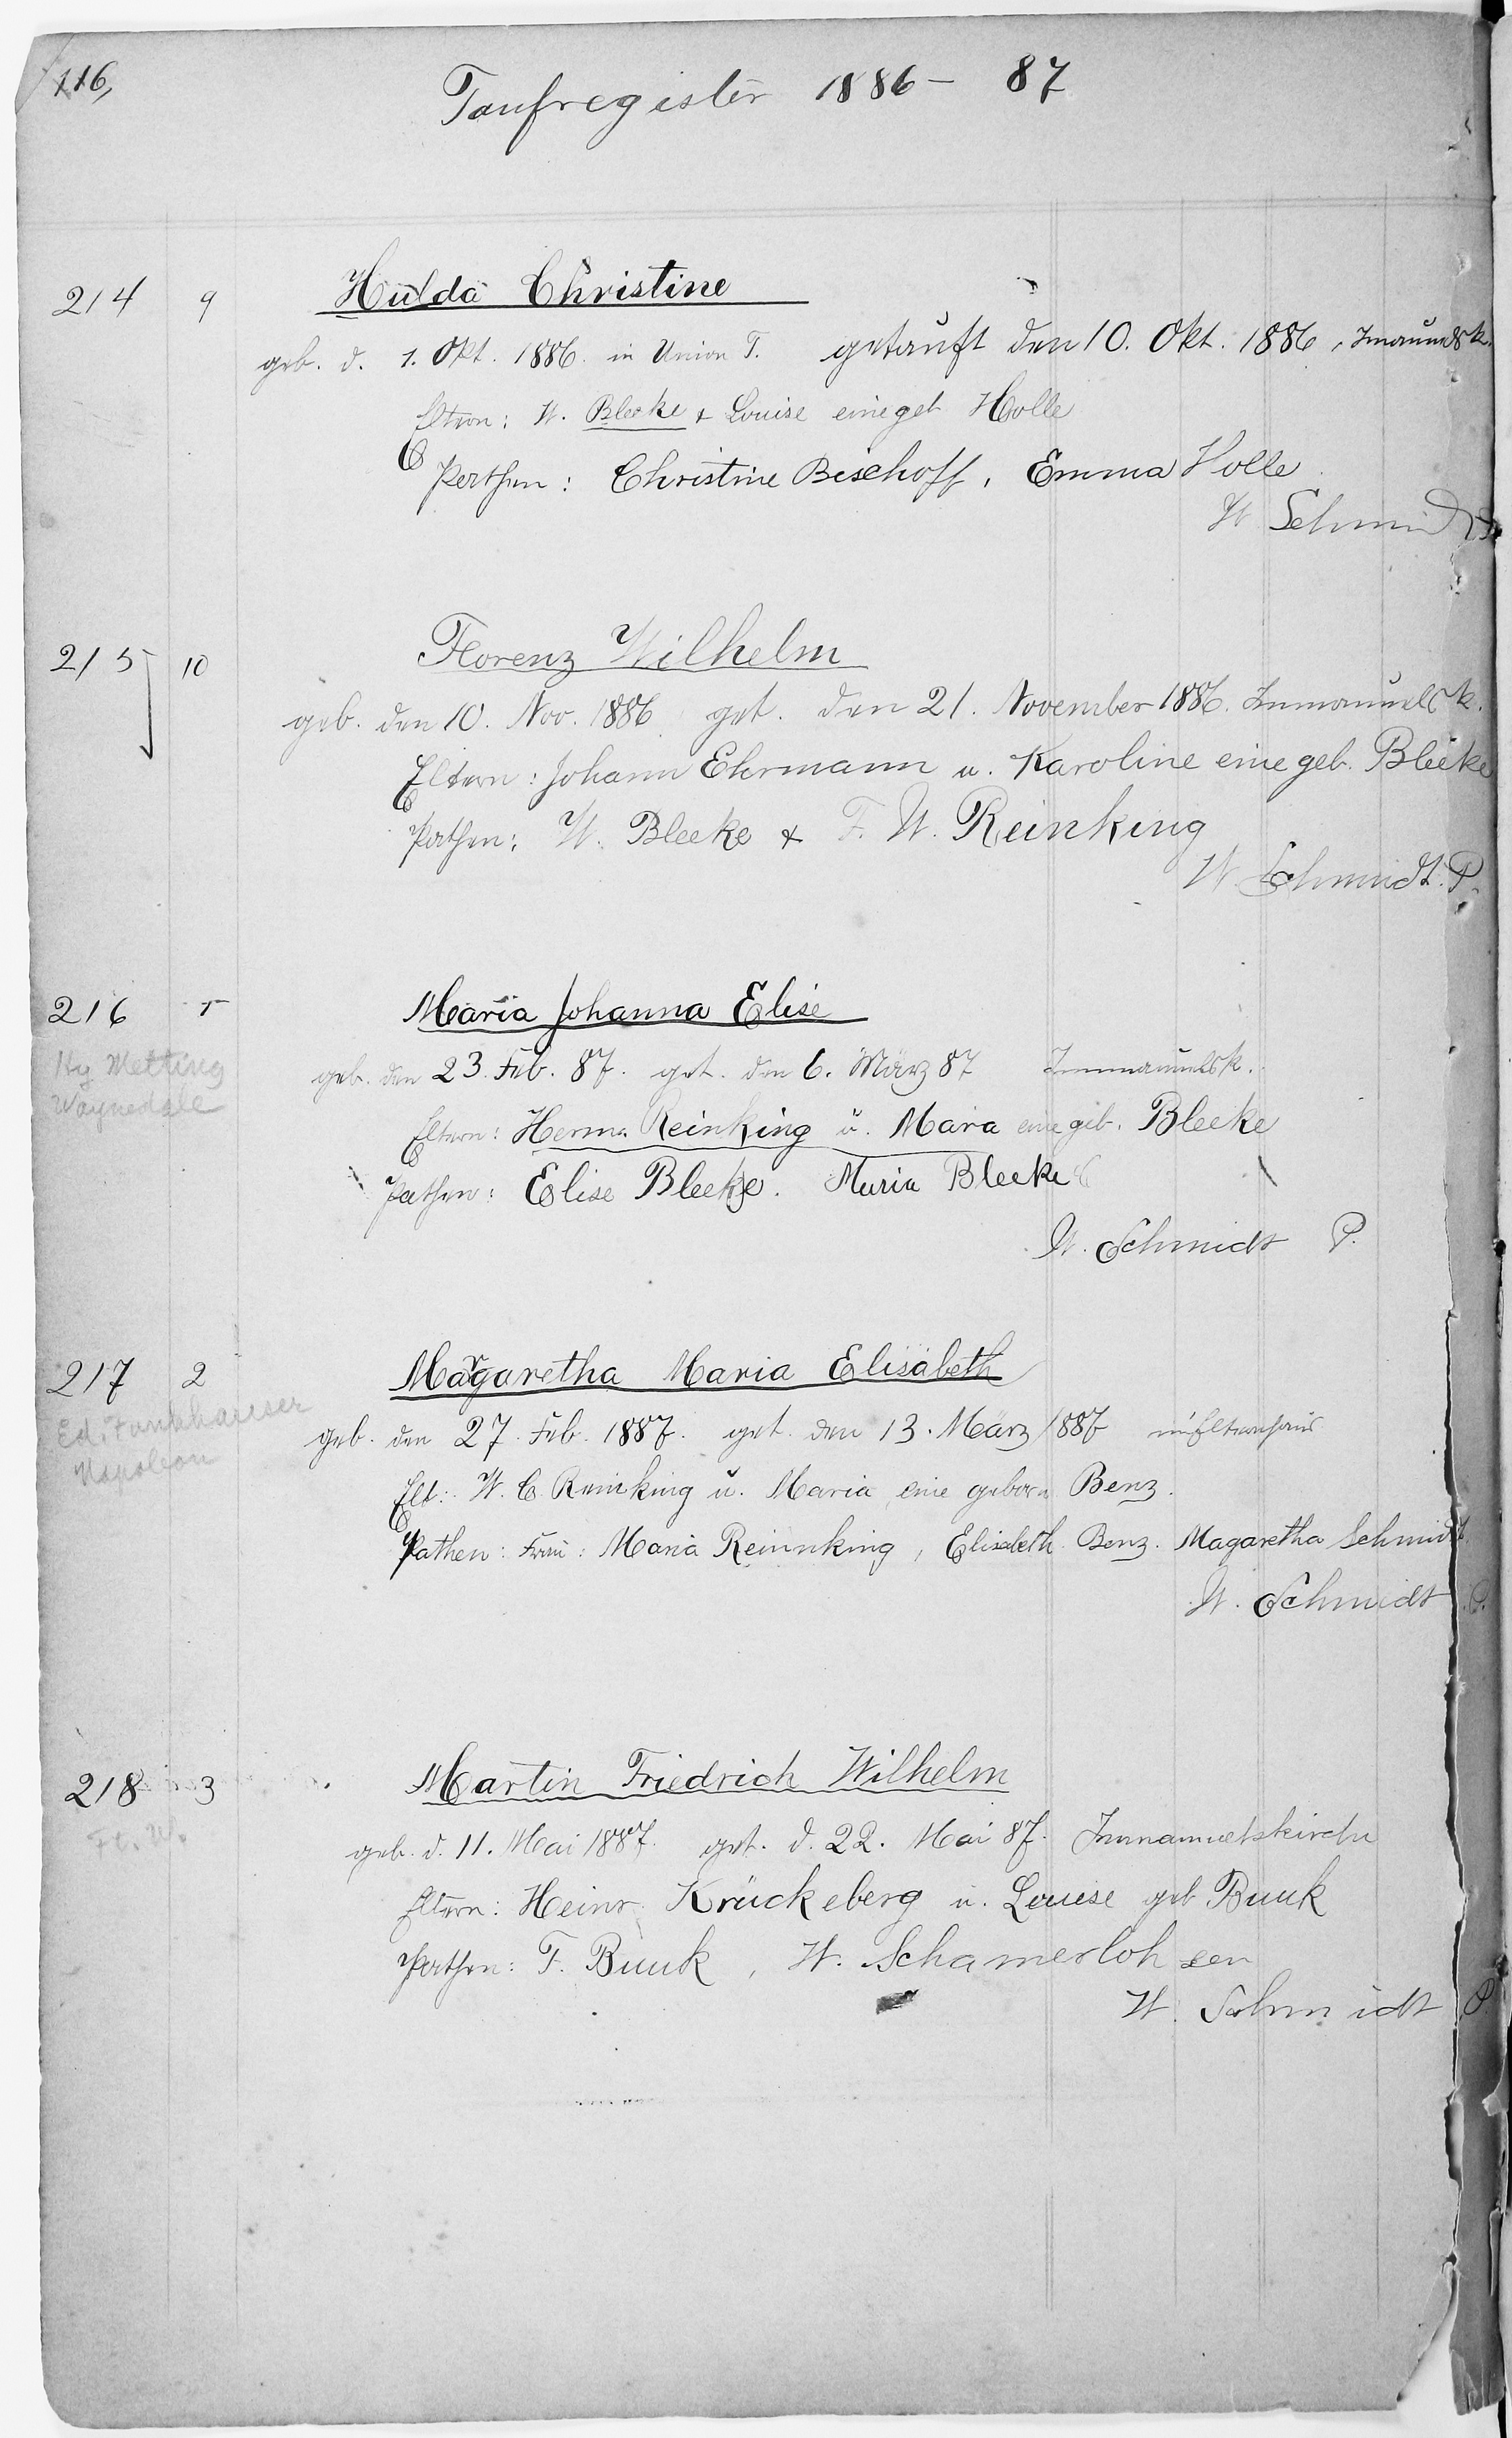 116,
Taufregister 1886 – 87
214 9 Hulda Christine
geb. d. 1. Okt. 1886. in Union T. getauft den 10. Okt. 1886, Imanuelsk.
Eltern: W. Bleeke + Louise eine geb Holle
Pathen: Christine Bischoff, Emma Holle
W Schmidt
215 10 Florenz Wilhelm
geb. den 10. Nov. 1886 get. den 21. November 1886. Immanuelsk.
Eltern: Johann Ehrmann u. Karoline eine geb. Bleeke
Pathen: W. Bleeke + F. W. Reinking
W. Schmidt. P.
216 1 Maria Johanna Elise
Hy Metting
Waynedale
geb. den 23. Feb. 87. get. den 6. März 87 Immanuelsk.
Eltern: Herm. Reinking u. Maria eine geb. Bleeke
Pathen: Elise Bleeke. Maria Bleeke
W. Schmidt P.
217 2 Margaretha Maria Elisabeth
Ed. Funkhauser
Napoleon
geb. den 27. Feb. 1887. get. den 13. März 1887 im Elternhaus
Elt: W. C. Reinking u. Maria eine geborn Benz.
Pathen: Frau: Maria Reinnking, Elisabeth Benz. Magaretha Schmidt
W. Schmidt P.
218 3 Martin Friedrich Wilhelm
Ft. W.
geb. d. 11. Mai 1887. get. d. 22. Mai 87. Immanuelskirche
Eltern: Heinr. Krückeberg u. Louise geb Buuk
Pathen: F. Buuk, W. Schamerloh sen
W. Schmidt P.